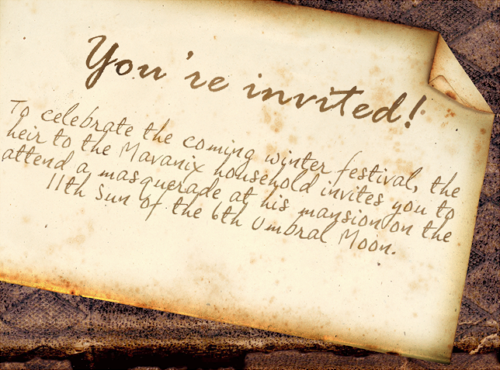 You're invited!
To celebrate the coming winter festival, the
heir to the Mavanix household invites you to
attend a masquerade at his mansion on the
11th Sun of the 6th Umbral Moon.